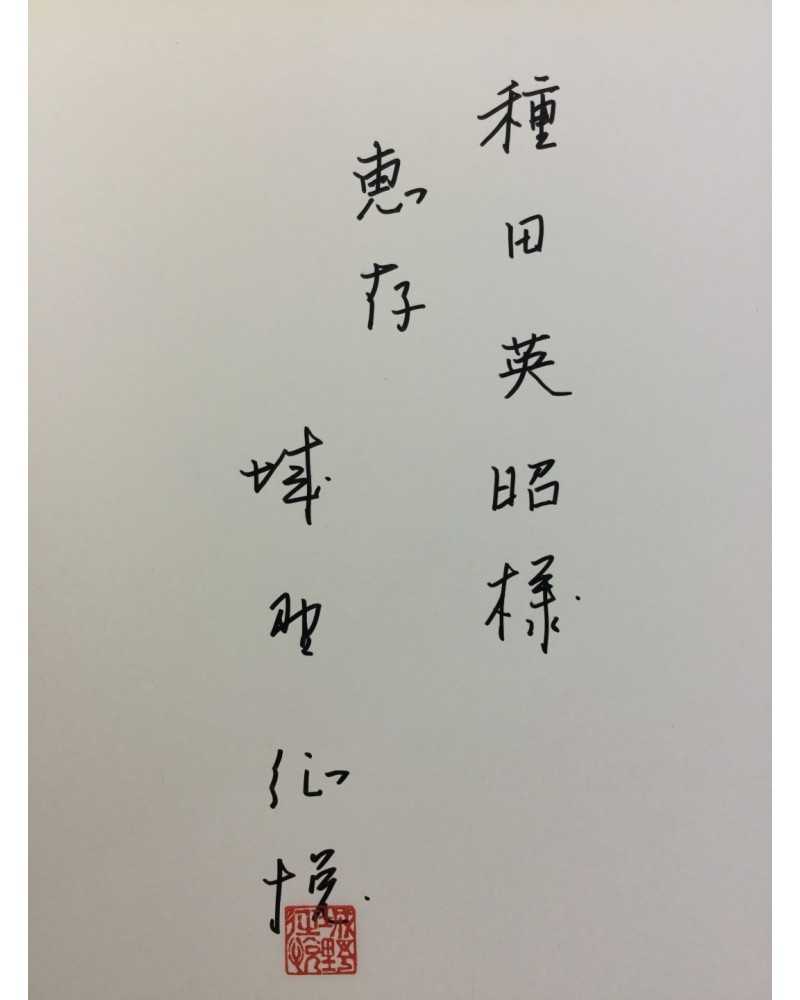 種田英昭様
恵存
城野征悦
城野
征悦